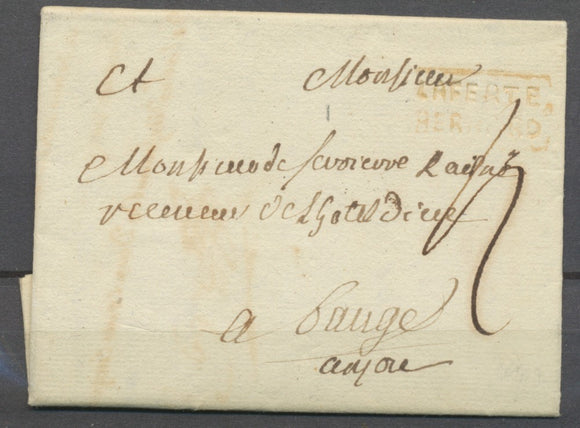 A Monsieur
LAFERTE,
BERNARD
Monsieur de
receveur de Lhotel dieu
a baugé
anjou